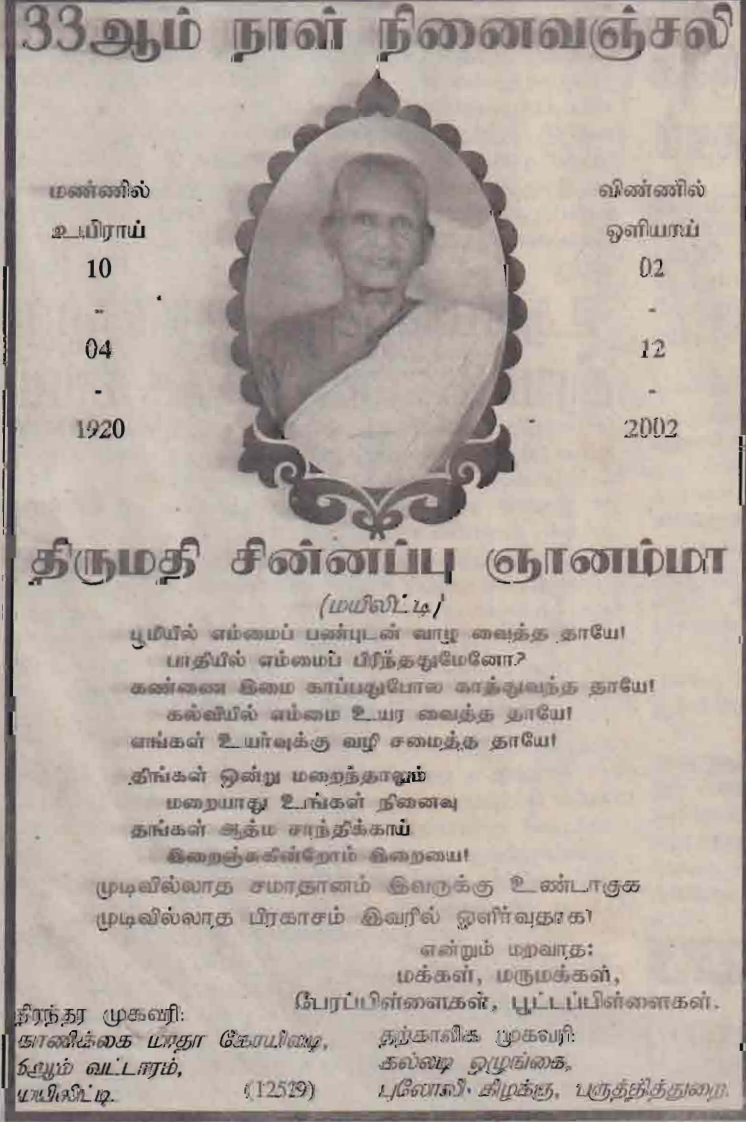 33ஆம் நாள் நினைவஞ்சலி
மண்ணில்
உயிராய்
10
-
04
-
1920
விண்ணில்
ஒளியாய்
02
-
12
-
2002
திருமதி சின்னப்பு ஞானம்மா
(மயிலிட்டி)
பூமியில் எம்மைப் பண்புடன் வாழ வைத்த தாயே!
பாதியில் எம்மைப் பிரிந்ததுமேனோ?
கண்ணை இமை காப்பதுபோல காத்துவந்த தாயே!
கல்வியில் எம்மை உயர வைத்த தாயே!
எங்கள் உயர்வுக்கு வழி சமைத்த தாயே!
திங்கள் ஒன்று மறைந்தாலும்
மறையாது உங்கள் நினைவு
தங்கள் ஆத்ம சாந்திக்காய்
இறைஞ்சுகின்றோம் இறையை!
முடிவில்லாத சமாதானம் இவருக்கு உண்டாகுக
முடிவில்லாத பிரகாசம் இவரில் ஒளிர்வதாக!
என்றும் மறவாத:
மக்கள், மருமக்கள்,
பேரப்பிள்ளைகள், பூட்டப்பிள்ளைகள்.
நிரந்தர முகவரி:
காணிக்கை மாதா கோயிலடி,
6ஆம் வட்டாரம்,
மயிலிட்டி.
(12529)
தற்காலிக முகவரி:
கல்லடி ஒழுங்கை,
புலோலி கிழக்கு, பருத்தித்துறை.